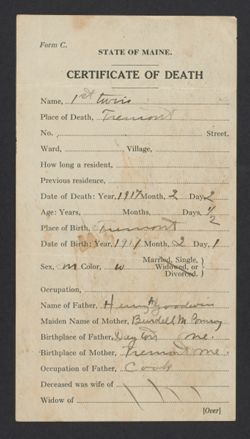 Form C.
STATE OF MAINE.
CERTIFICATE OF DEATH
Name, 1st twin
Place of Death, Tremont
No. , Street.
Ward, Village,
How long a resident,
Previous residence,
Date of Death: Year, 1917 Month, 2 Day, 2
Age: Years, Months, Days, 1/2
Place of Birth, Tremont
Date of Birth: Year, 1917 Month, 2 Day, 1
Sex, m Color, w Married, Single, Widowed, or Divorced.
Occupation,
Name of Father, Henry Goodwin
Maiden Name of Mother, Burdell M.
Birthplace of Father, me.
Birthplace of Mother, Tremont me.
Occupation of Father, Cook
Deceased was wife of
Widow of
[Over]